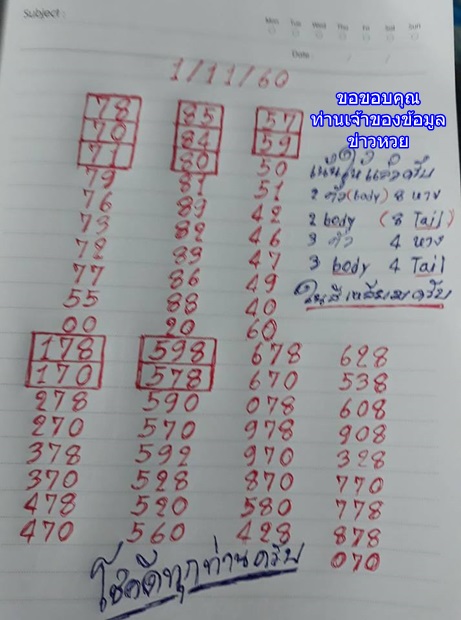 Subject :
Mon Tue Wed Thu Fri Sat Sun
Date / /
1/11/60
ขอขอบคุณ
ท่านเจ้าของข้อมูล
ข่าวหวย
78 85 57
70 84 59
71 80 50
79 81 51
76 89 42
73 82 46
72 83 47
77 86 49
55 88 40
00 20 60
2 ตัว (body) 8 หาง
2 body (8 Tail)
3 ตัว 4 หาง
3 body 4 Tail
ในสี่เหลี่ยมครับ
178 598 678 628
170 578 670 538
278 590 078 608
270 570 978 908
378 592 970 328
370 528 870 770
478 520 580 778
470 560 428 878
070
โชคดีทุกท่านครับ